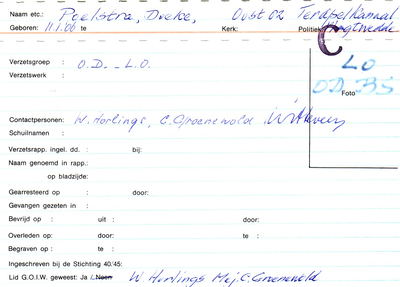 Naam etc.: Poelstra, Doeke, Oost 02 Terapelkanaal
Geboren: 11.1.06 te Kerk: Politiek: Vlagtwedde
C
Verzetsgroep : O.D. - L.O. LO
Verzetswerk : OD BS
Foto
Contactpersonen: W. Horlings, C. Groenewolde
Schuilnaam :
Verzetsrapp. ingel. dd. : bij:
Naam genoemd in rapp.:
op bladzijde:
Gearresteerd op : door:
Gevangen gezeten in :
Bevrijd op : uit : door:
Overleden op: door: te :
Begraven op : te :
Ingeschreven bij de Stichting 40/45:
Lid G.O.I.W. geweest: Ja / Neen W. Horlings Mej. C. Groeneveld